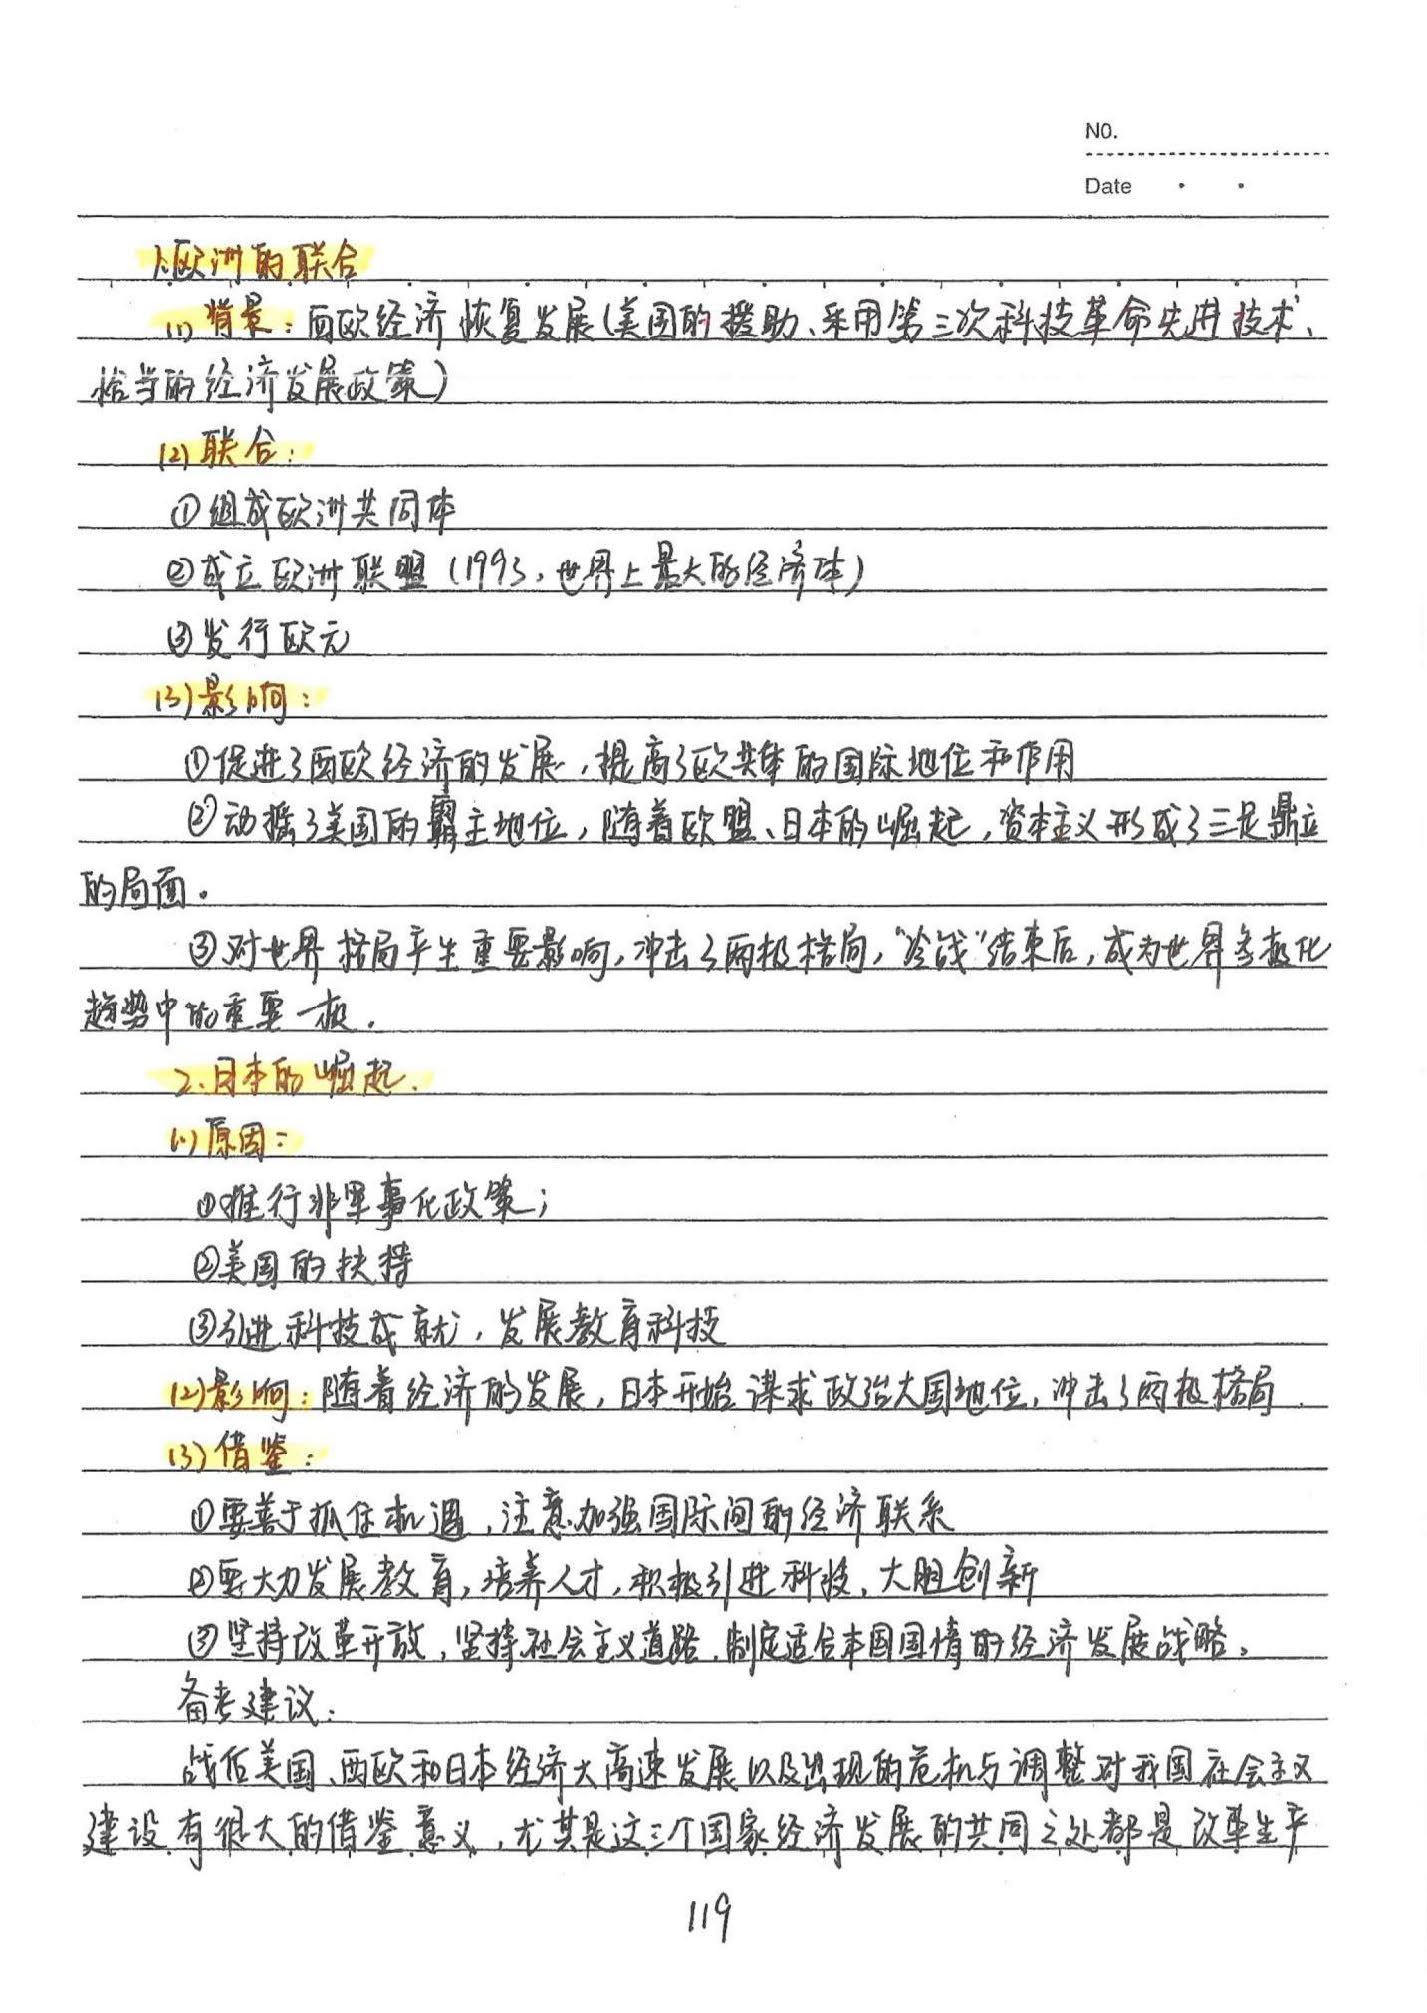 NO.
Date
1.欧洲的联合
(1)背景：西欧经济恢复发展(美国的援助、采用第三次科技革命先进技术、
恰当的经济发展政策)
(2)联合：
①组成欧洲共同体
②成立欧洲联盟(1993，世界上最大的经济体)
③发行欧元
(3)影响：
①促进了西欧经济的发展，提高了欧共体的国际地位和作用
②动摇了美国的霸主地位，随着欧盟、日本的崛起，资本主义形成了三足鼎立
的局面。
③对世界格局产生重要影响，冲击了两极格局，“冷战”结束后，成为世界多极化
趋势中的重要一极.
2.日本的崛起.
(1)原因：
①推行非军事化政策；
②美国的扶持
③引进科技成就，发展教育科技
(2)影响：随着经济的发展，日本开始谋求政治大国地位，冲击了两极格局.
(3)借鉴：
①要善于抓住机遇，注意加强国际间的经济联系
②要大力发展教育，培养人才，积极引进科技，大胆创新
③坚持改革开放，坚持社会主义道路，制定适合本国国情的经济发展战略。
备考建议：
战后美国、西欧和日本经济大高速发展以及出现的危机与调整对我国社会主义
建设有很大的借鉴意义，尤其是这三个国家经济发展的共同之处都是改革生产
119